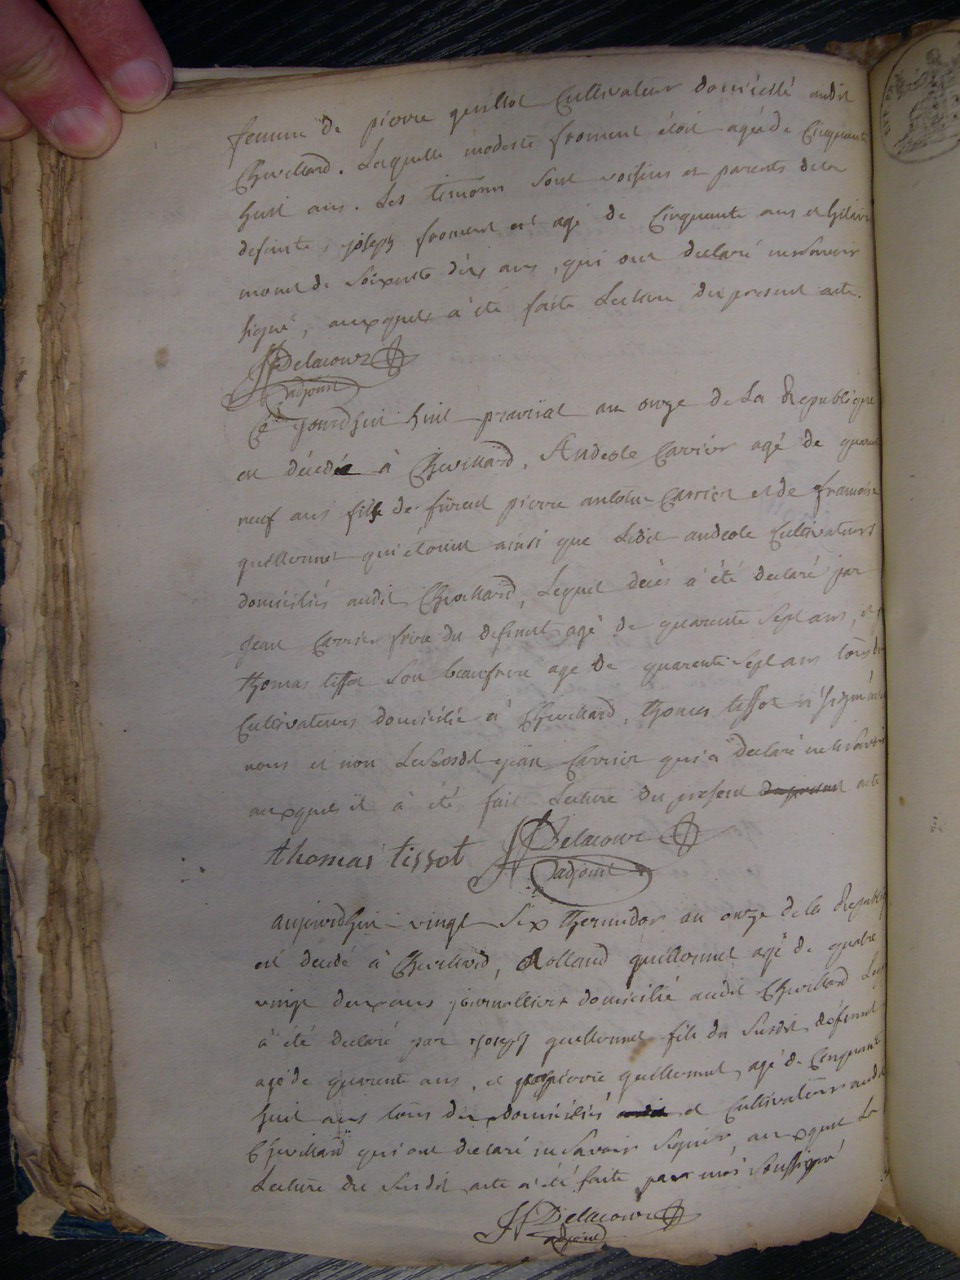 femme de pierre guillot Cultivateur domicilié audit
Chevillard. Laquelle modeste froment étoit agée de Cinquante
huit ans. Les temoins sont voisins et parents de la
defunte, joseph froment est agé de Cinquante ans et hilaire
monet de Soixante dix ans, qui ont declaré ne savoir
signé, auxquels à été faite Lecture du present acte.
Delacour
adjoint
Ce jourdhui huit prairial an onze de La Republique
est décédé à Chevillard, Andeole Carrier agé de quarante
neuf ans fils de fürent pierre antoine Carrier et de francoise
quillermet qui étoient ainsi que Ledit andeole Cultivateurs
domiciliés audit Chevillard, Lequel décès a été declaré par
jean Carrier frere du defunt agé de quarente sept ans, et
thomas tissot son beaufrere agé de quarente sept ans tous deux
Cultivateurs domicilié à Chevillard, thomas tissot a signé avec
nous et non Le susdit jean Carrier qui a declaré ne le savoir
auxquels il à été fait Lecture du present du present acte
thomas tissot Delacour
adjoint
aujourdhui vingt six thermidor an onze de la Republiq
est decedé à Chevillard, Rolland guillermet agé de quatre
vingt deux ans journallier domicilié audit Chevillard Leq
à été declaré par joseph guillermet fils du susdit défunt
agé de quarent ans, et pierre guillermet agé de Cinquante
huit ans tous deux domiciliés et Cultivateurs audit
Chevillard qui ont declaré ne savoir signer auxquel La
Lecture du susdit acte a été faite par moi soussigné
Delacour
adjoint